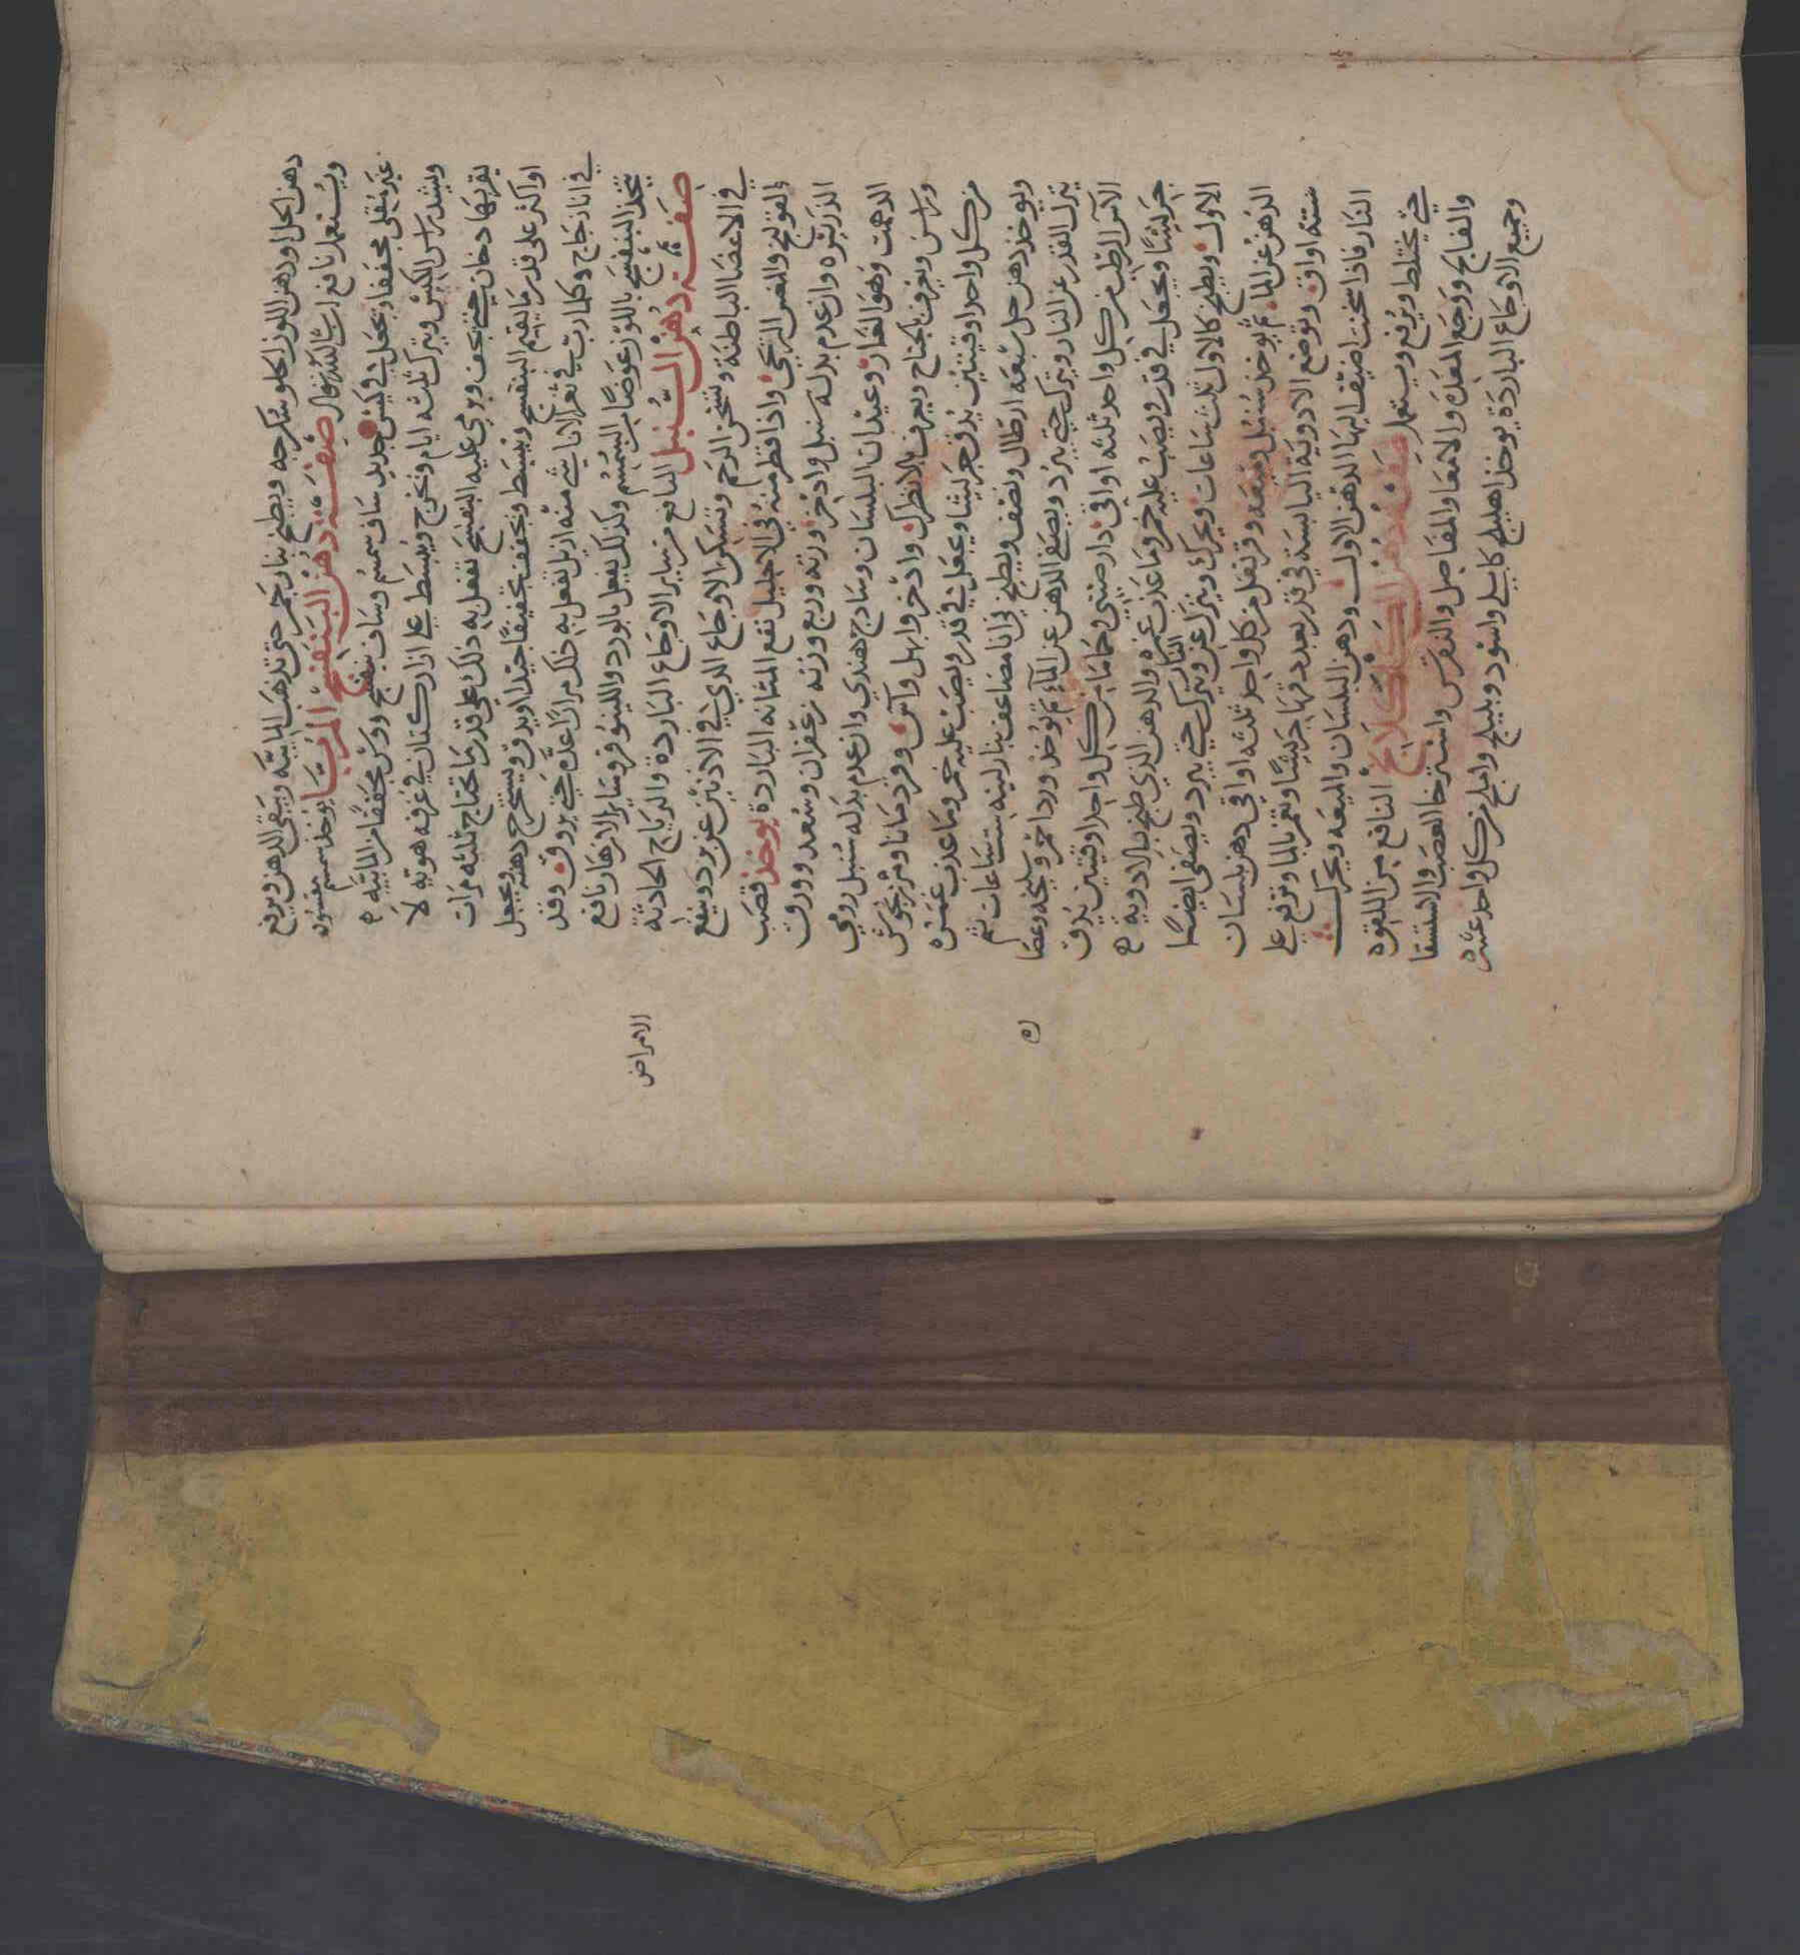 دهن الحل او دهن اللوز الحلو سكرجه ويطبخ بنار جمر حتى تذهب الماييه ويبقى الدهن ويرفع
ويستعمل نافع ان شا الله تعالى صفة دهن البنفسج المربا يوخذ سمسم مقشور
غير مقلى مجففا ويجعل في كيس جديد ساف سمسم وساف بنفسج ويكون مجففا من الماييه ه
ويشد راس الكيس ويترك ثلثه ايام ويخرج ويبسط على ازار كتان في غرفه هويه لا
يقربها دخان حتى يجف ويرمى عليه البنفسج تفعل به ذلك على قدر ما تحتاج ثلثه مرات
او اكثر على قدر ما يقيم البنفسج ويبسط ويجفف تجفيفا جيدا ويدق ويستخرج دهنه ويجعل
في انا زجاج وكلما رسب في قعر الانا شي منه ازيل تفعل به ذلك مرارا عده حتى يروق وقد
يتخذ البنفسج باللوز عوضا من السمسم وكذلك يفعل بالورد واللينوفر وساير الازهار نافع
صفة دهن السنبل النافع من ساير الاوجاع الباردة والرياح الحادثة
في الاعضا الباطنة ويسخن الرحم ويسكن الاوجاع الذي في الاذنين عن برد وينفع
القولنج والمغس الريحى واذا قطر منه في الاحليل نفع المثانه الباردة يوخذ قصب
الذريره وان عدم بدله سنبل واذخر وزنه وربع وزنه زعفران وسعد وورق
الدهمت وهو الغار وعيدان البلسان وسادج هندي وان عدم بدله سنبل رومي
وراسن ويعرف بالجناح ويعرف بالانطرك واذخر وابهل وآس وقردمانا ومرزنجوش
من كل واحد اوقيتين يدق جريشا ويجعل في قدر ويصب عليه خمر وما عذب غمره
ويوخذ دهن حل سبعه ارطال ونصف ويطبخ في انا مضاعف بنار لينه ست ساعات ثم
ينزل القدر عن النار ويترك حتى يبرد ويصفى الدهن عن الما ثم يوخذ ورد احمر وسليخه وعصا
الآس الرطب من كل واحد ثلثه اواقي دار صيني وحماما من كل واحد اوقيتين يدق
جريشا ويجعل في قدر ويصب عليه خمر وما عذب غمره والدهن الذي طبخ بالادوية ه
الاول ويطبخ كالاول ثلث ساعات ويحرك وينزل عن النار ويترك حتى يبرد ويصفى ايضا
الدهن عن الما ثم يوخذ سنبل وميعه وقرنفل من كل واحد ثلثه اواقي دهن بلسان
ستة اواق وتوضع الادوية اليابسة في قدر بعد دقها جريشا وتغمر بالما وترفع على
النار فاذا سخنت اضيف اليها الدهن الاول ودهن البلسان والميعه ويحرك
حتى يختلط ويرفع ويستعمل صفة دهن الكلكلانج النافع من اللقوه
والفالج ووجع المعدة والامعا والمفاصل والنقرس واسترخا العصب والاستسقا
وجميع الاوجاع الباردة يوخذ اهليلج كابلي واسود وبليلج واملج من كل واحد عشره
الامراض